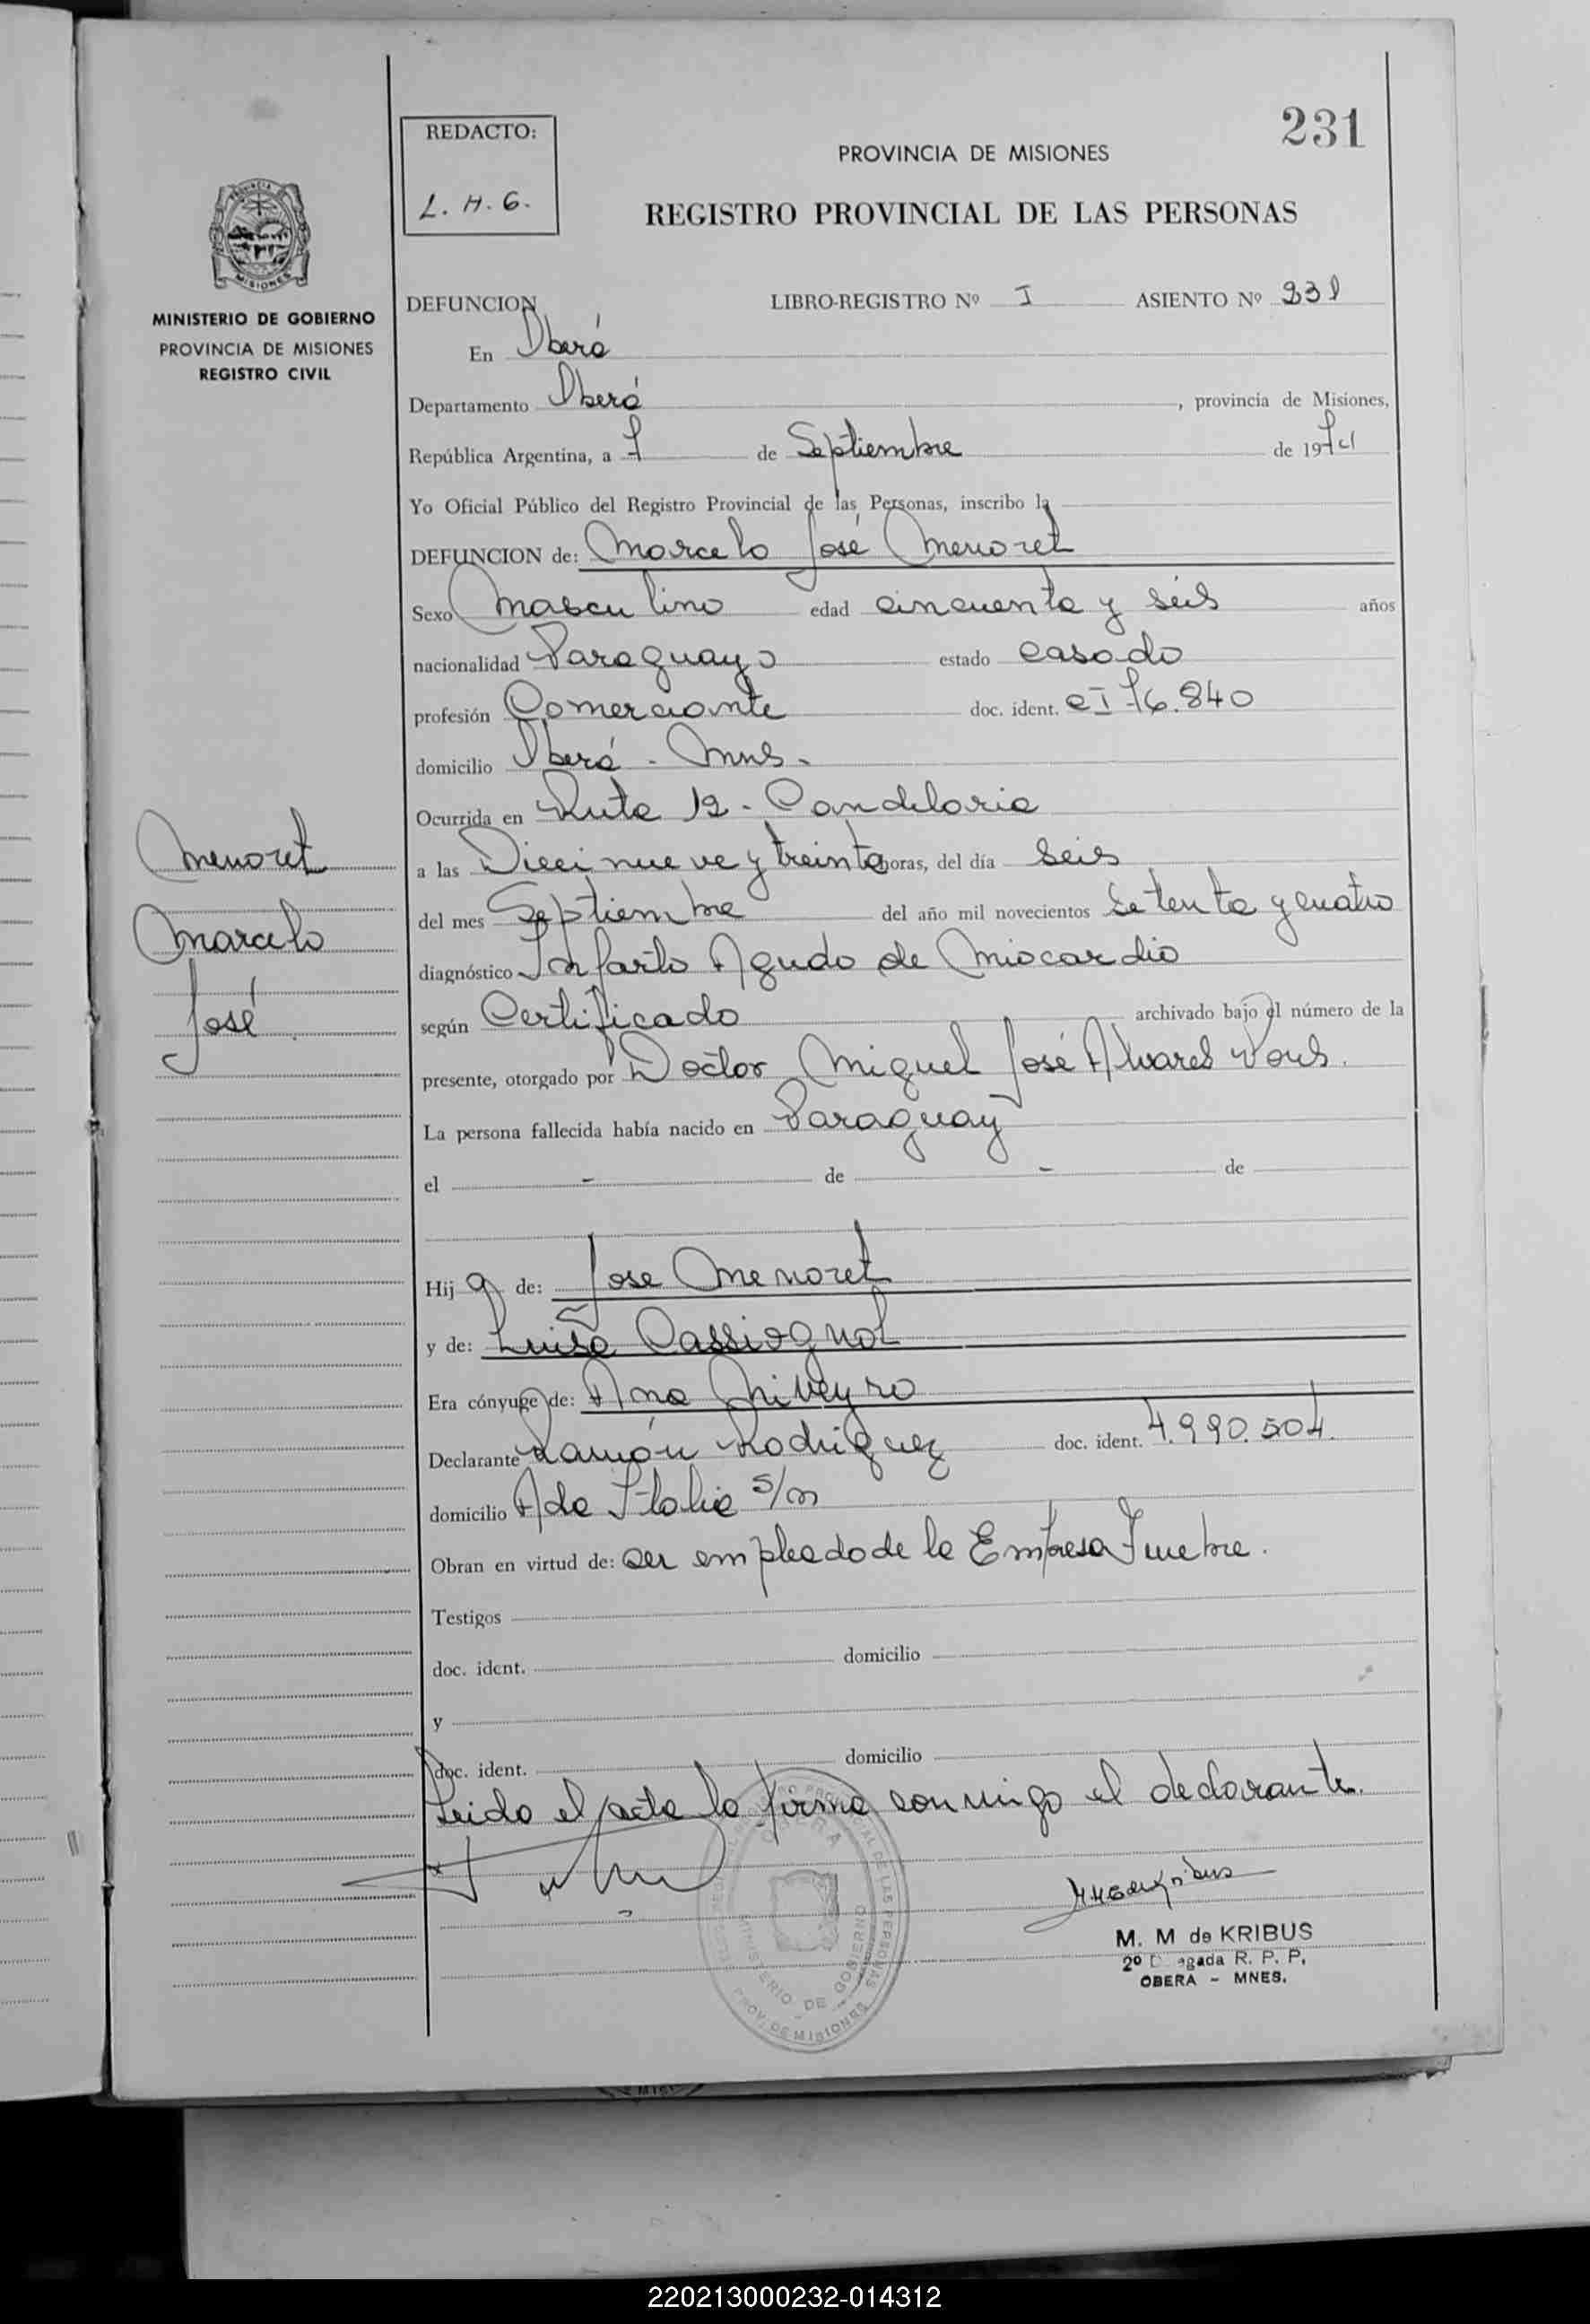 231
REDACTO:
L. H. G.
PROVINCIA DE MISIONES
REGISTRO PROVINCIAL DE LAS PERSONAS
MINISTERIO DE GOBIERNO
PROVINCIA DE MISIONES
REGISTRO CIVIL
DEFUNCION LIBRO-REGISTRO Nº I ASIENTO Nº 231
En Oberá
Departamento Oberá, provincia de Misiones,
República Argentina, a 7 de Septiembre de 1974
Yo Oficial Público del Registro Provincial de las Personas, inscribo la
DEFUNCION de: Marcelo José Menoret
Sexo Masculino edad cincuenta y seis años
nacionalidad Paraguayo estado casado
profesión Comerciante doc. ident. CI 76.840
domicilio Oberá - Mnes -
Ocurrida en Ruta 12 - Candelaria
a las Diecinueve y treinta horas, del día seis
del mes Septiembre del año mil novecientos setenta y cuatro
diagnóstico Infarto Agudo de Miocardio
según Certificado archivado bajo el número de la
presente, otorgado por Doctor Miguel José Alvares
La persona fallecida había nacido en Paraguay
el - de - de
Menoret
Marcelo
José
Hijo de: Jose Menoret
y de: Luisa Cassiognol
Era cónyuge de: Ana
Declarante Ramón Rodriguez doc. ident. 4.990.504
domicilio Ada Italia s/n
Obran en virtud de: ser empleado de la Empresa Funebre.
Testigos
doc. ident. domicilio
y
doc. ident. domicilio
Leida el acta la firma conmigo el declarante.
REGISTRO PROVINCIAL DE LAS PERSONAS
OBERA
MINISTERIO DE GOBIERNO
PROV. DE MISIONES
M. M de KRIBUS
2º D agada R. P. P.
OBERA - MNES.
220213000232-014312